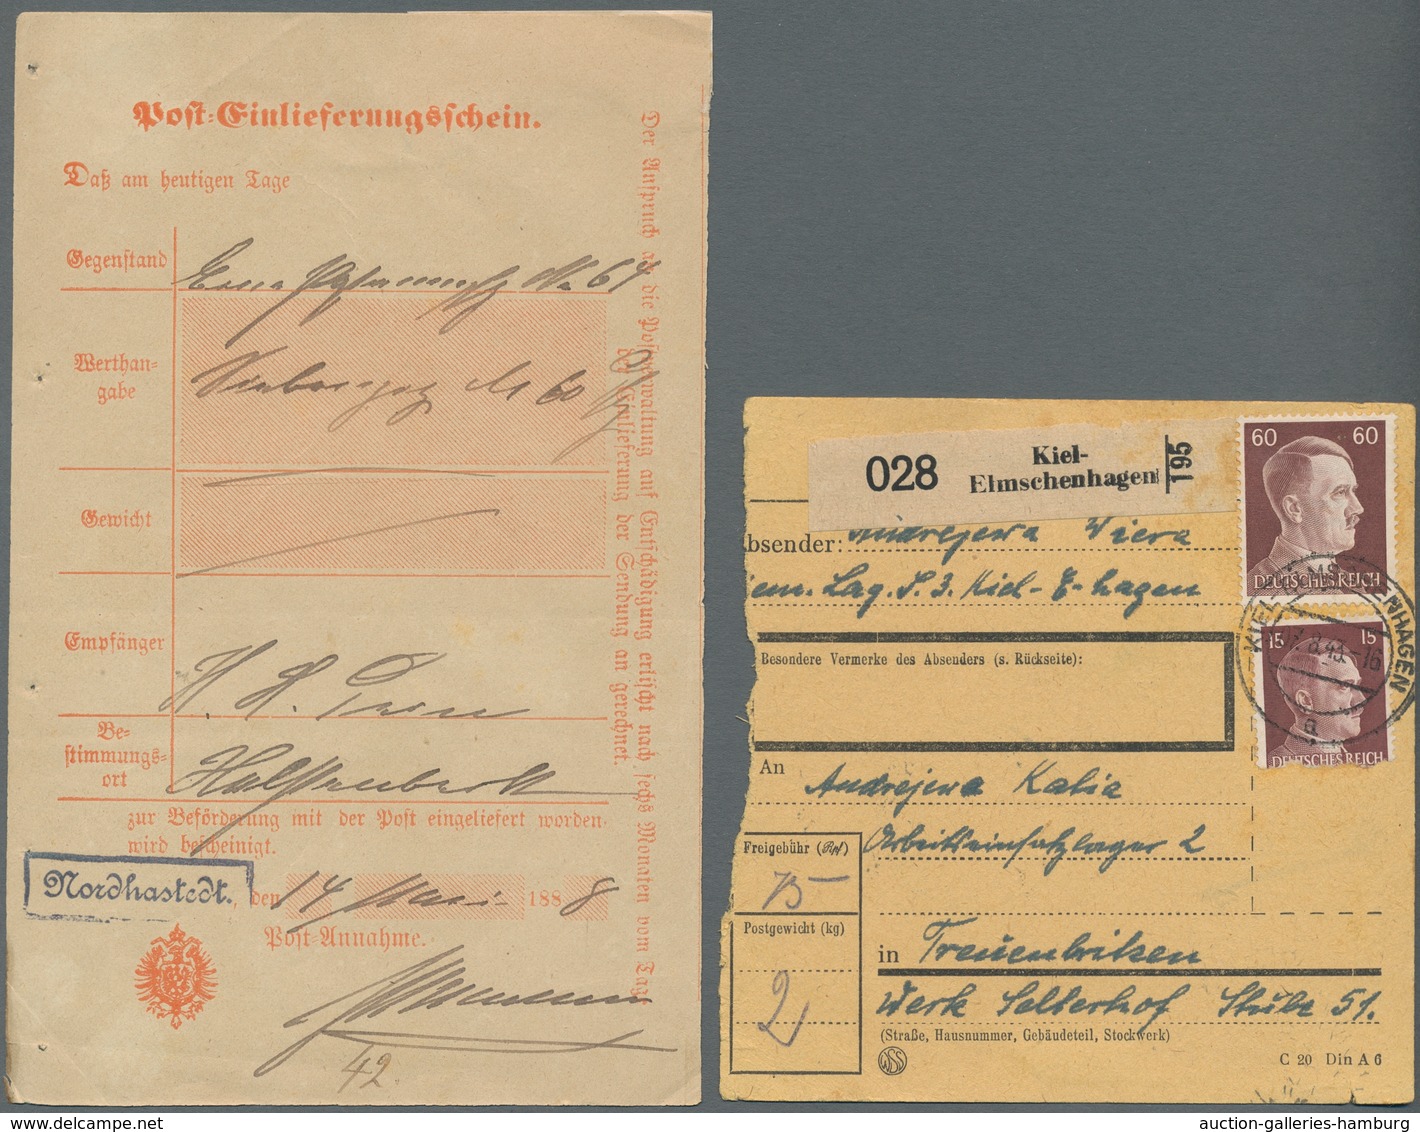 Post-Einlieferungsschein.
Daß am heutigen Tage
Gegenstand
No 67
Werthan-
gabe
M 60
Gewicht
Empfänger
H. H.
Be-
stimmungs-
ort
zur Beförderung mit der Post eingeliefert worden,
wird bescheinigt.
Nordhastedt., den 14 Mai 1888
Post-Annahme.
42
Der Anspruch an die Postverwaltung auf Entschädigung erlischt nach sechs Monaten vom Tage
der Einlieferung der Sendung an gerechnet.
028
Kiel-
Elmschenhagen
195
60 60
DEUTSCHES REICH
15 15
DEUTSCHES REICH
KIEL-ELMSCHENHAGEN
a
bsender: Andrejewa Wiera
em. Lag. S. 3. Kiel-E-hagen
Besondere Vermerke des Absenders (s. Rückseite):
An Andrejewa Katia
Arbeitseinsatzlager 2
Freigebühr (Rpf)
75
Postgewicht (kg)
2
in Treuenbritzen
Werk Selterhof Stube 51.
(Straße, Hausnummer, Gebäudeteil, Stockwerk)
WSS
C 20 Din A 6
auction-galleries-hamburg